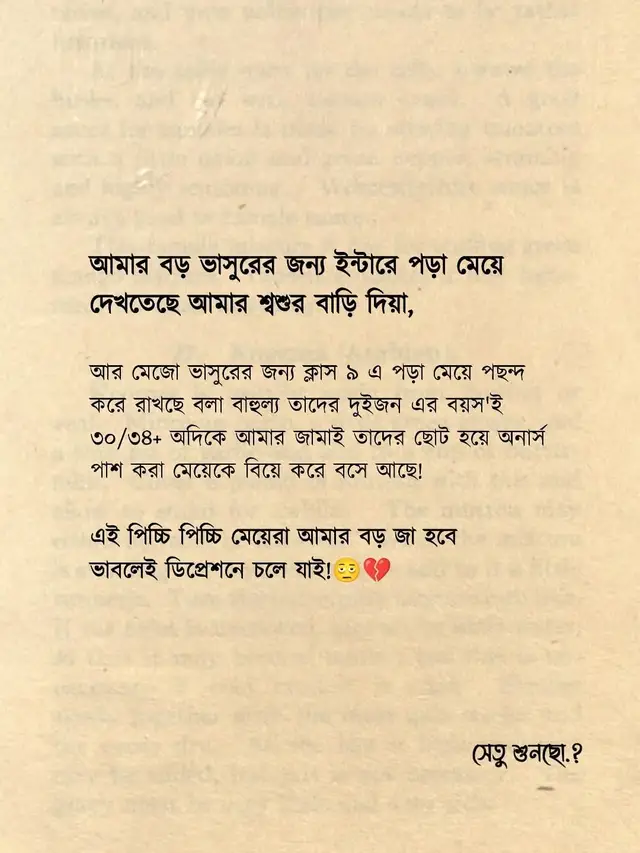 আমার বড় ভাসুরের জন্য ইন্টারে পড়া মেয়ে
দেখতেছে আমার শ্বশুর বাড়ি দিয়া,
আর মেজো ভাসুরের জন্য ক্লাস ৯ এ পড়া মেয়ে পছন্দ
করে রাখছে বলা বাহুল্য তাদের দুইজন এর বয়স'ই
৩০/৩৪+ অদিকে আমার জামাই তাদের ছোট হয়ে অনার্স
পাশ করা মেয়েকে বিয়ে করে বসে আছে!
এই পিচ্চি পিচ্চি মেয়েরা আমার বড় জা হবে
ভাবলেই ডিপ্রেশনে চলে যাই!😔💔
সেতু শুনছো.?